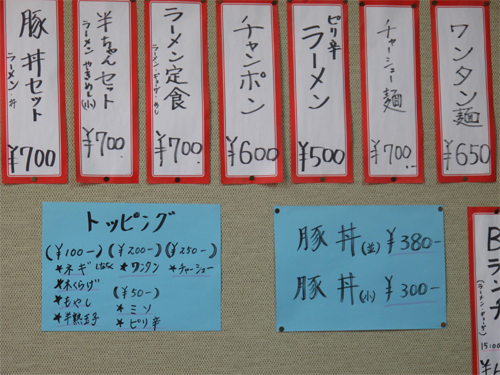 ワンタン麺
¥650
チャーシュー麺
¥700
ピリ辛
ラーメン
¥500
チャンポン
¥600
ラーメン定食
¥700
半ちゃんセット
ラーメン やきめし(小)
¥700
豚丼セット
ラーメン・丼
¥700
トッピング
(¥100-) (¥200-) (¥250-)
★ネギ ★ワンタン ★チャーシュー
★木くらげ
★もやし
★半熟玉子
(¥50-)
★ミソ
★ピリ辛
豚丼(並) ¥380-
豚丼(小) ¥300-
B
ランチ
15:00